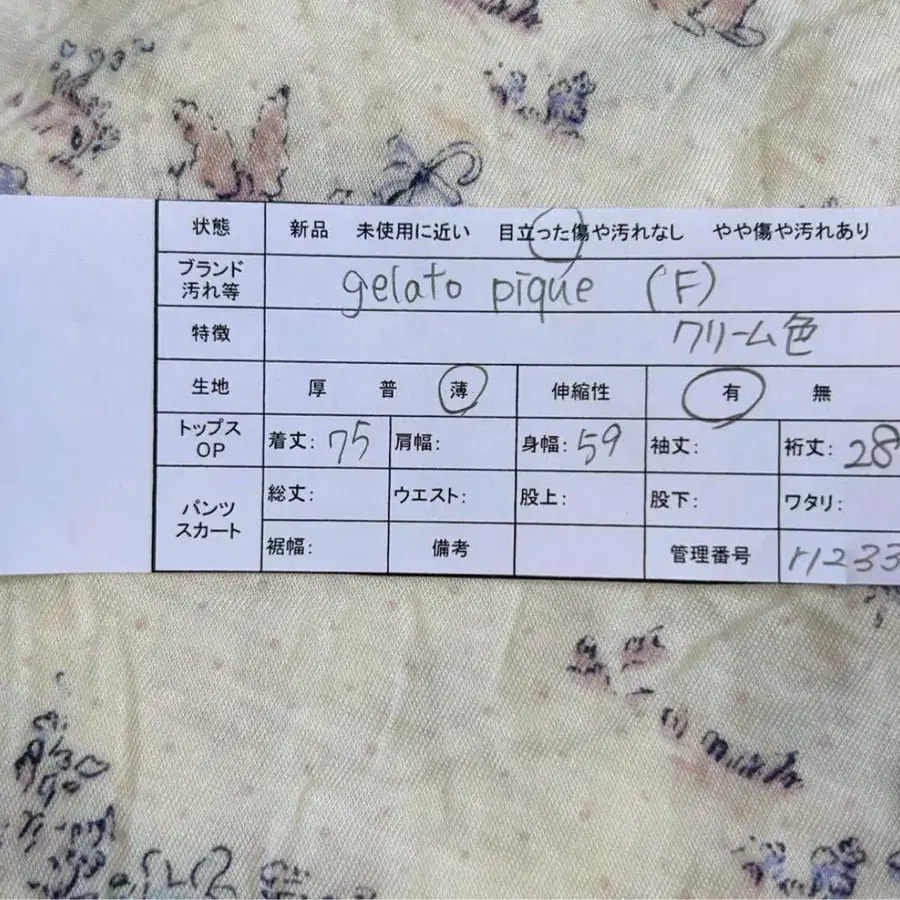 状態 新品 未使用に近い 目立った傷や汚れなし やや傷や汚れあり
ブランド
汚れ等
gelato pique (F)
特徴 クリーム色
生地 厚 普 薄 伸縮性 有 無
トップス
OP
着丈: 75 肩幅: 身幅: 59 袖丈: 裄丈: 28
パンツ
スカート
総丈: ウエスト: 股上: 股下: ワタリ:
裾幅: 備考 管理番号 r1233